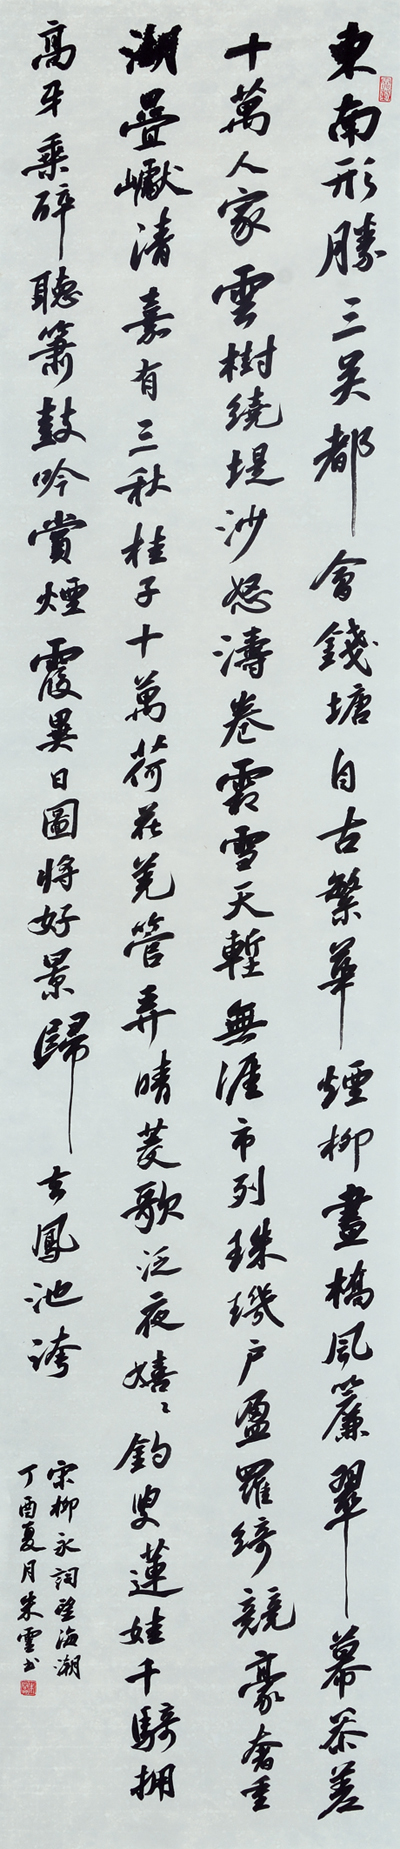 東南形勝三吴都會錢塘自古繁華煙柳畫橋風簾翠幕參差
十萬人家雲樹繞堤沙怒濤卷霜雪天塹無涯市列珠璣户盈羅綺競豪奢重
湖疊巘清嘉有三秋桂子十萬荷花羌管弄晴菱歌泛夜嬉〻釣叟蓮娃千騎擁
高牙乘醉聽簫鼓吟賞煙霞異日圖將好景歸去鳳池誇
宋柳永詞望海潮
丁酉夏月朱雲書